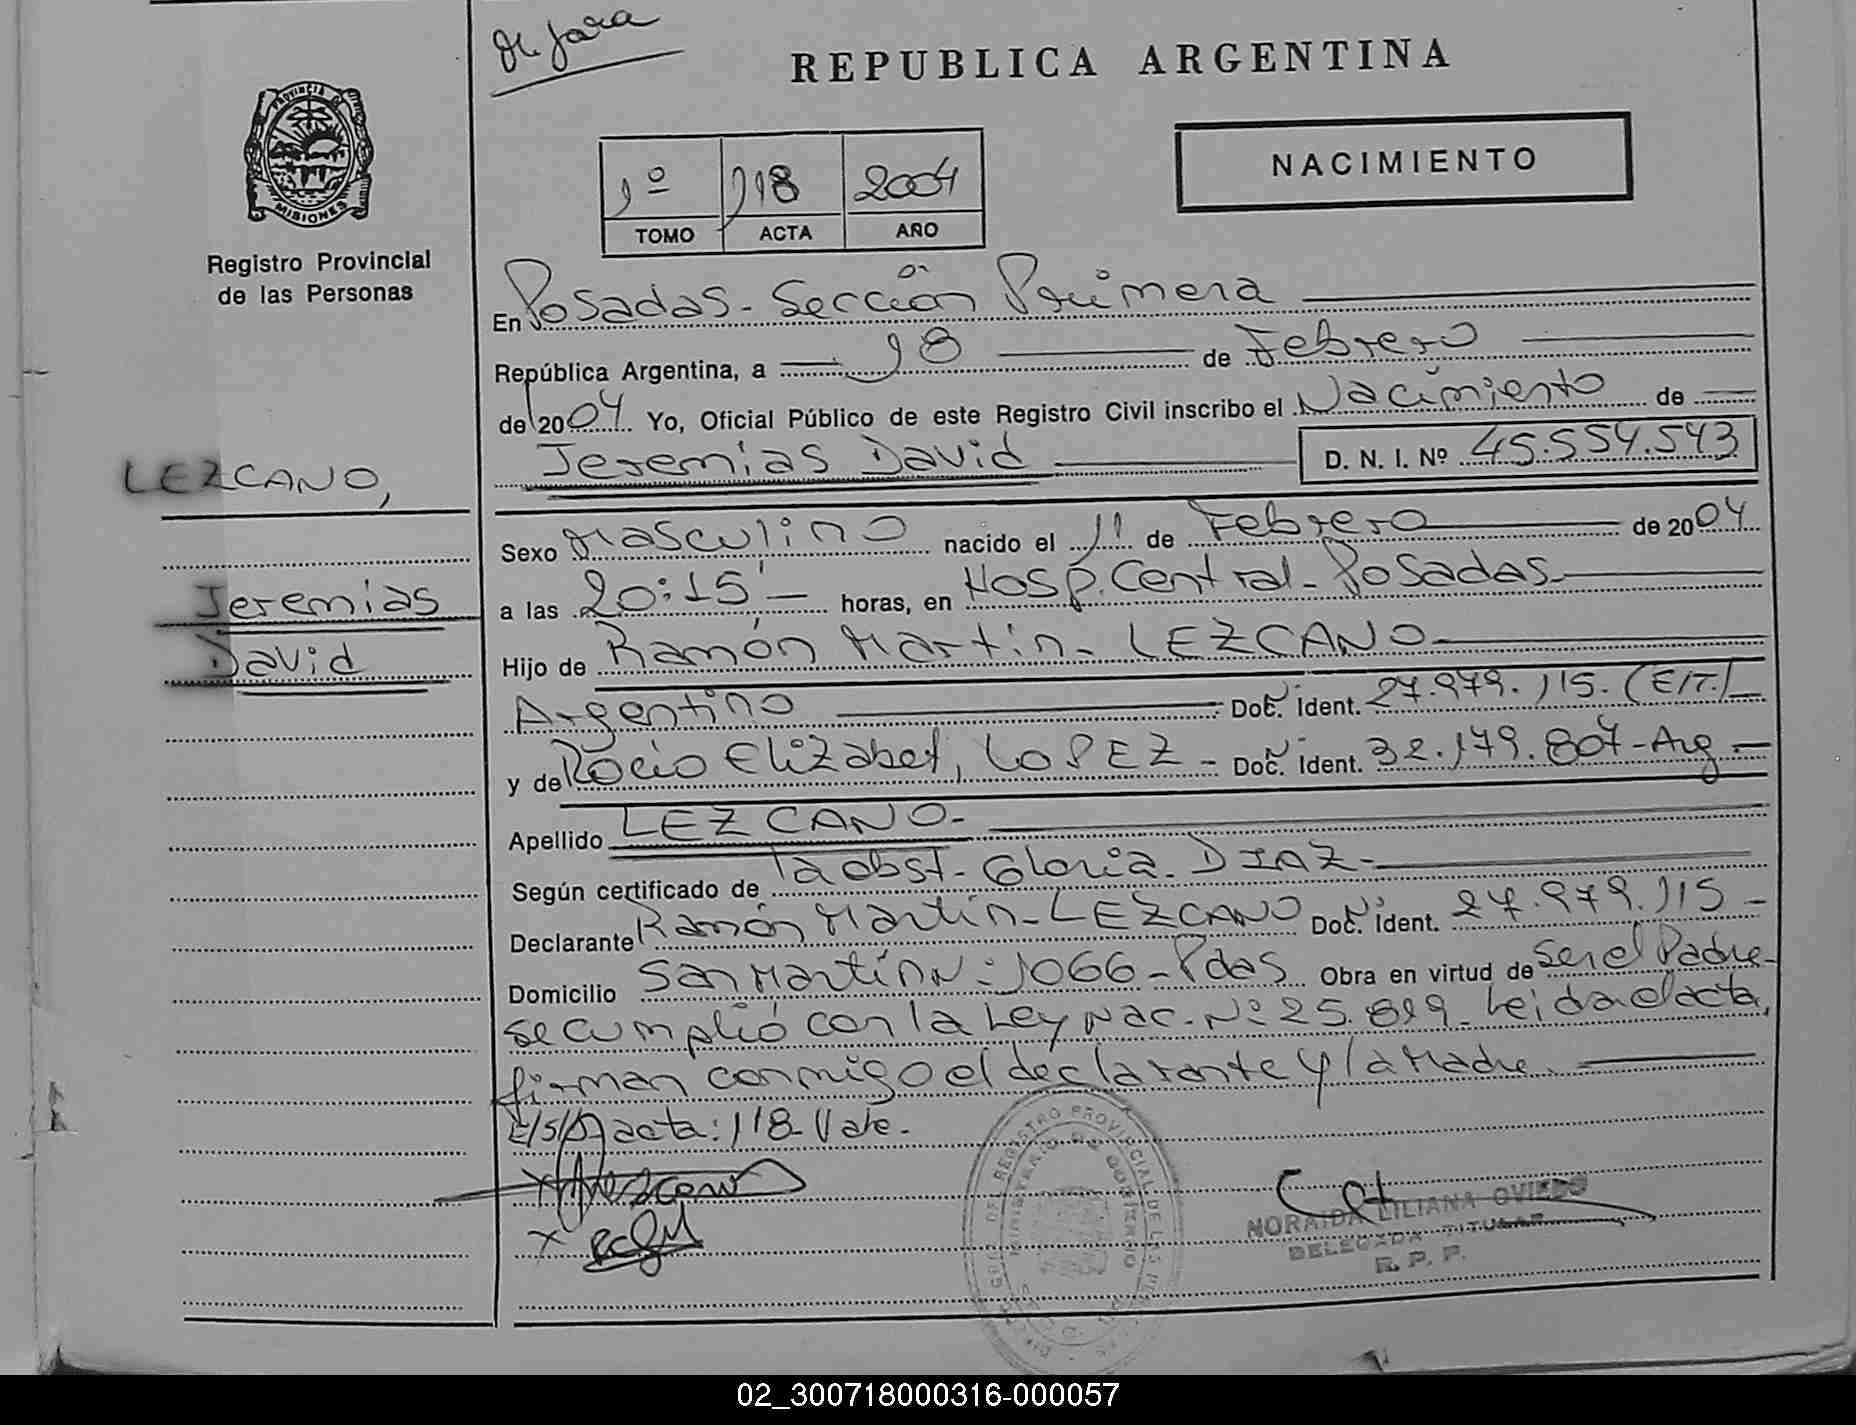 REPUBLICA ARGENTINA
PROVINCIA DE
MISIONES
Registro Provincial
de las Personas
1º 118 2004
TOMO ACTA AÑO
NACIMIENTO
En Posadas - Sección Primera
República Argentina, a 18 de Febrero
de 2004 Yo, Oficial Público de este Registro Civil inscribo el Nacimiento de
Jeremias David D. N. I. Nº 45.554.543
LEZCANO,
Jeremias
David
Sexo Masculino nacido el 11 de Febrero de 2004
a las 20:15' horas, en Hosp. Central - Posadas -
Hijo de Ramón Martin - LEZCANO -
Argentino Doc. Ident. 27.979.115. (EIT.)
y de Rocio Elizabet, LOPEZ - Doc. Ident. 32.179.807 - Arg -
Apellido LEZCANO -
Según certificado de la obst - Gloria - DIAZ -
Declarante Ramón Martín - LEZCANO Doc. Ident. 27.979.115 -
Domicilio San Martín Nº 1066 - Pdas Obra en virtud de ser el Padre -
se cumplió con la Ley Nac. Nº 25.819 - Leida el acta,
firman conmigo el declarante y la Madre.
E/S/ acta: 118 Vale.
REGISTRO PROVINCIAL DE LAS
MINISTERIO DE GOBIERNO
NORAIDA LILIANA OVIEDO
DELEGADA TITULAR
R. P. P.
02_300718000316-000057